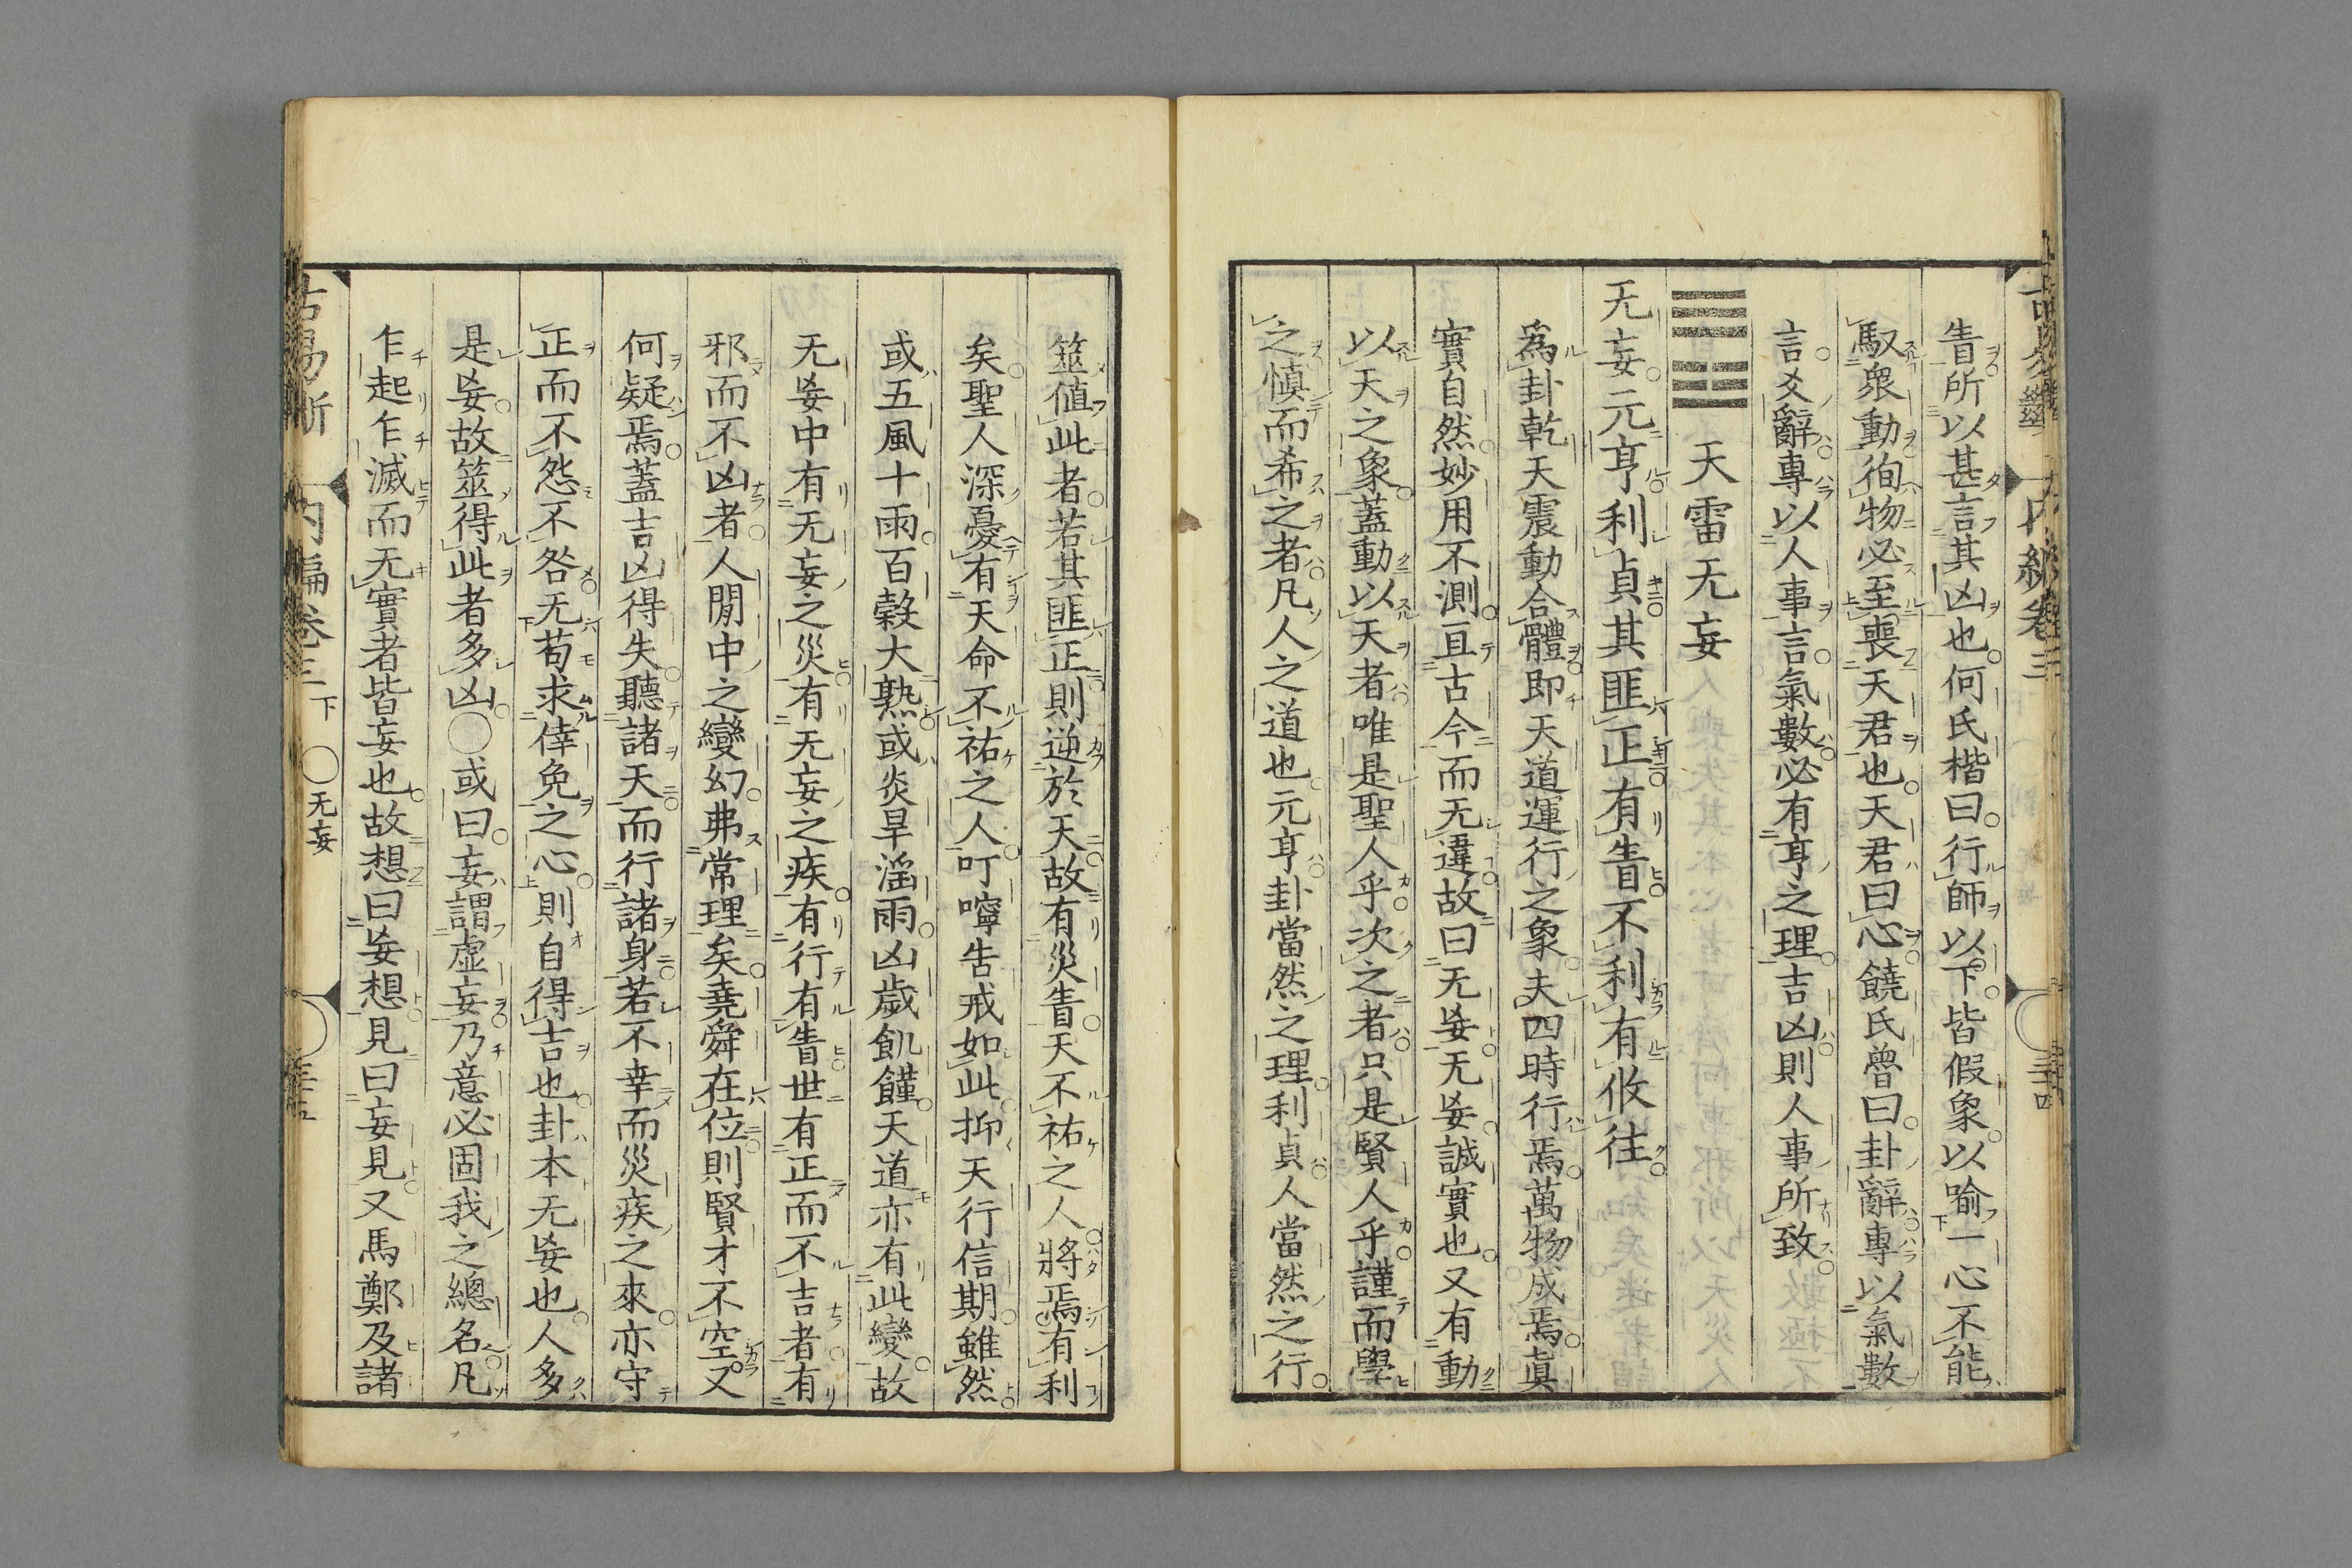 眚所以甚言其凶也何氏楷曰行師以下皆假象以喻一心不能
馭衆動徇物必至喪天君也天君曰心饒氏曾曰卦辭專以氣數
言爻辭專以人事言氣數必有亨之理吉凶則人事所致
天雷无妄
无妄元亨利貞其匪正有眚不利有攸往
為卦乾天震動合體即天道運行之象夫四時行焉萬物成焉眞
實自然妙用不測亘古今而无違故曰无妄无妄誠實也又有動
以天之象蓋動以天者唯是聖人乎次之者只是賢人乎謹而學
之慎而希之者凡人之道也元亨卦當然之理利貞人當然之行
筮値此者若其匪正則逆於天故有災眚天不祐之人將焉有利
矣聖人深憂有天命不祐之人叮嚀告戒如此抑天行信期雖然
或五風十雨百穀大熟或炎旱淫雨凶歲飢饉天道亦有此變故
无妄中有无妄之災有无妄之疾有行有眚世有正而不吉者有
邪而不凶者人間中之變幻弗常理矣堯舜在位則賢才不空又
何疑焉蓋吉凶得失聽諸天而行諸身若不幸而災疾之來亦守
正而不怨不咎无苟求倖免之心則自得吉也卦本无妄也人多
是妄故筮得此者多凶○或曰妄謂虛妄乃意必固我之總名凡
乍起乍滅而无實者皆妄也故想曰妄想見曰妄見又馬鄭及諸
古易斷 內編卷三下 ○无妄 三十五